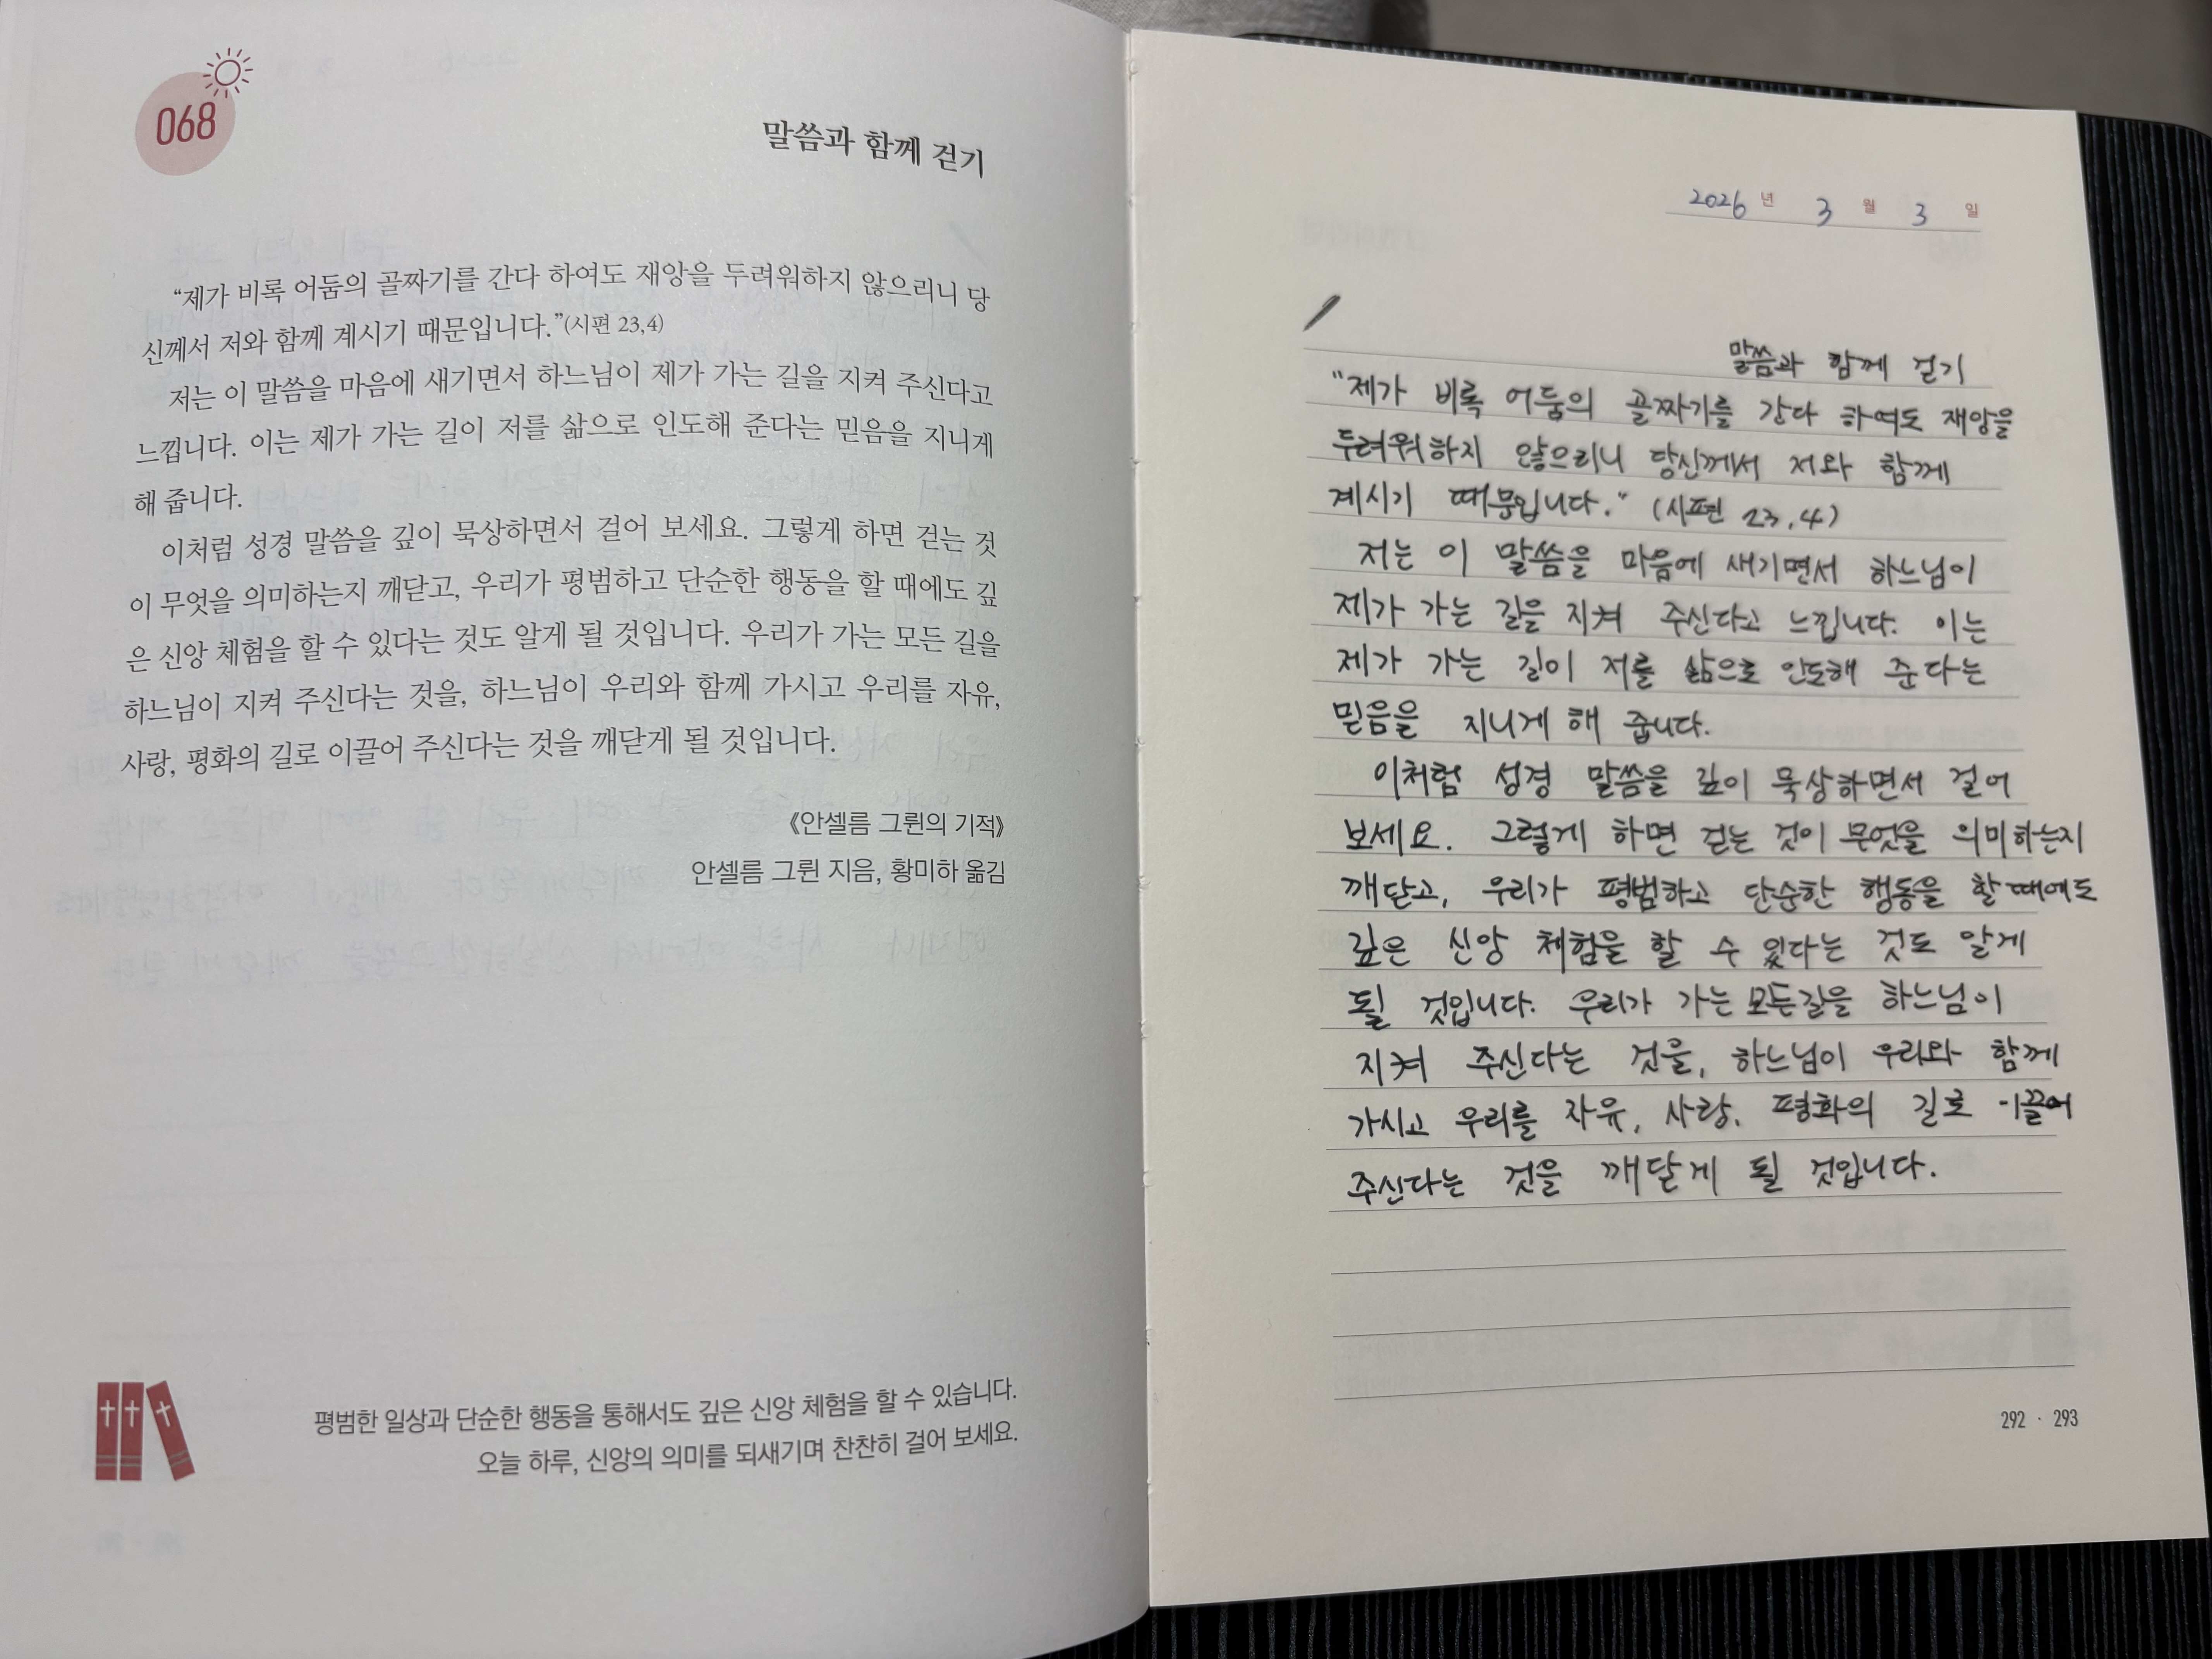 068
말씀과 함께 걷기
“제가 비록 어둠의 골짜기를 간다 하여도 재앙을 두려워하지 않으리니 당
신께서 저와 함께 계시기 때문입니다.”(시편 23,4)
저는 이 말씀을 마음에 새기면서 하느님이 제가 가는 길을 지켜 주신다고
느낍니다. 이는 제가 가는 길이 저를 삶으로 인도해 준다는 믿음을 지니게
해 줍니다.
이처럼 성경 말씀을 깊이 묵상하면서 걸어 보세요. 그렇게 하면 걷는 것
이 무엇을 의미하는지 깨닫고, 우리가 평범하고 단순한 행동을 할 때에도 깊
은 신앙 체험을 할 수 있다는 것도 알게 될 것입니다. 우리가 가는 모든 길을
하느님이 지켜 주신다는 것을, 하느님이 우리와 함께 가시고 우리를 자유,
사랑, 평화의 길로 이끌어 주신다는 것을 깨닫게 될 것입니다.
《안셀름 그륀의 기적》
안셀름 그륀 지음, 황미하 옮김
평범한 일상과 단순한 행동을 통해서도 깊은 신앙 체험을 할 수 있습니다.
오늘 하루, 신앙의 의미를 되새기며 찬찬히 걸어 보세요.
2026 년 3 월 3 일
말씀과 함께 걷기
"제가 비록 어둠의 골짜기를 간다 하여도 재앙을
두려워하지 않으리니 당신께서 저와 함께
계시기 때문입니다." (시편 23,4)
저는 이 말씀을 마음에 새기면서 하느님이
제가 가는 길을 지켜 주신다고 느낍니다. 이는
제가 가는 길이 저를 삶으로 인도해 준다는
믿음을 지니게 해 줍니다.
이처럼 성경 말씀을 깊이 묵상하면서 걸어
보세요. 그렇게 하면 걷는 것이 무엇을 의미하는지
깨닫고, 우리가 평범하고 단순한 행동을 할 때에도
깊은 신앙 체험을 할 수 있다는 것도 알게
될 것입니다. 우리가 가는 모든길을 하느님이
지켜 주신다는 것을, 하느님이 우리와 함께
가시고 우리를 자유, 사랑, 평화의 길로 이끌어
주신다는 것을 깨닫게 될 것입니다.
292 · 293